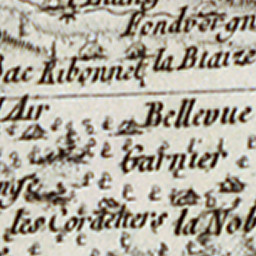 Fondvergn
Bac Ribonnet la Blaize
l'Air Bellevue
Garnier
les Cordeliers la Nob